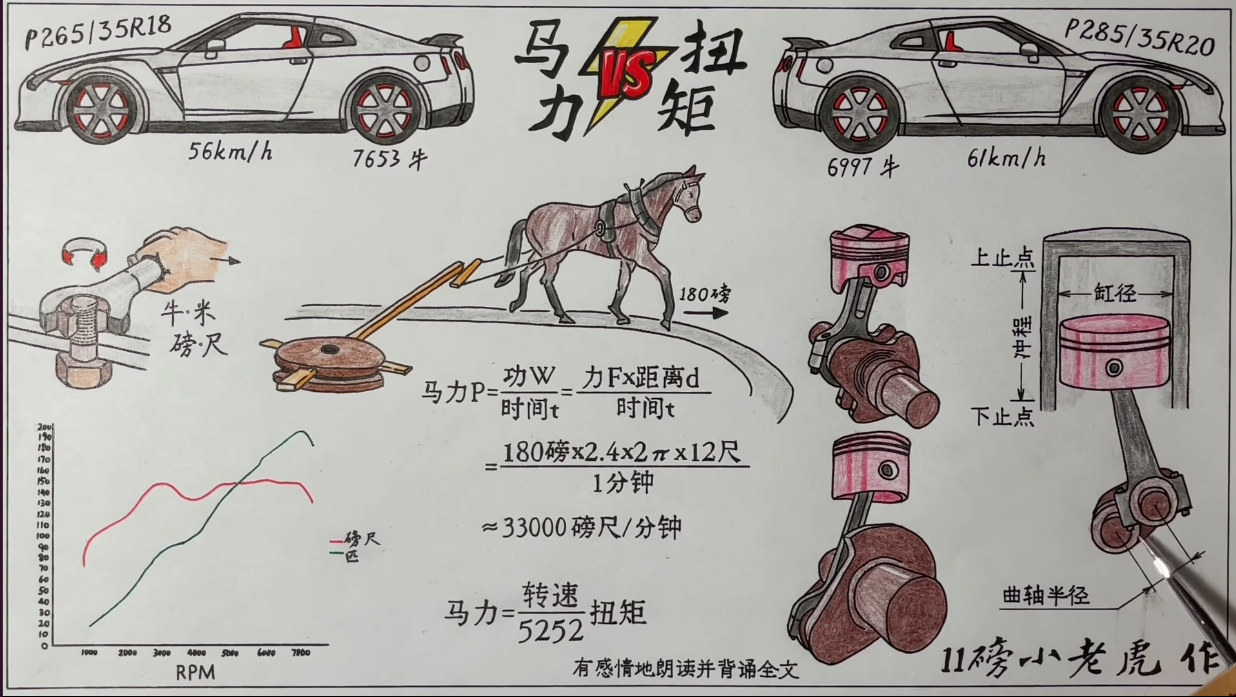 P265/35R18
马力
VS
扭矩
P285/35R20
56km/h
7653牛
6997牛
61km/h
牛·米
磅·尺
180磅
上止点
缸径
冲程
下止点
马力P=功W/时间t=力Fx距离d/时间t
=180磅x2.4x2πx12尺/1分钟
≈33000磅尺/分钟
马力=转速/5252扭矩
200
190
180
170
160
150
140
130
120
110
100
90
80
70
60
50
40
30
20
10
0
1000 2000 3000 4000 5000 6000 7000
RPM
磅尺
匹
曲轴半径
有感情地朗读并背诵全文
11磅小老虎 作